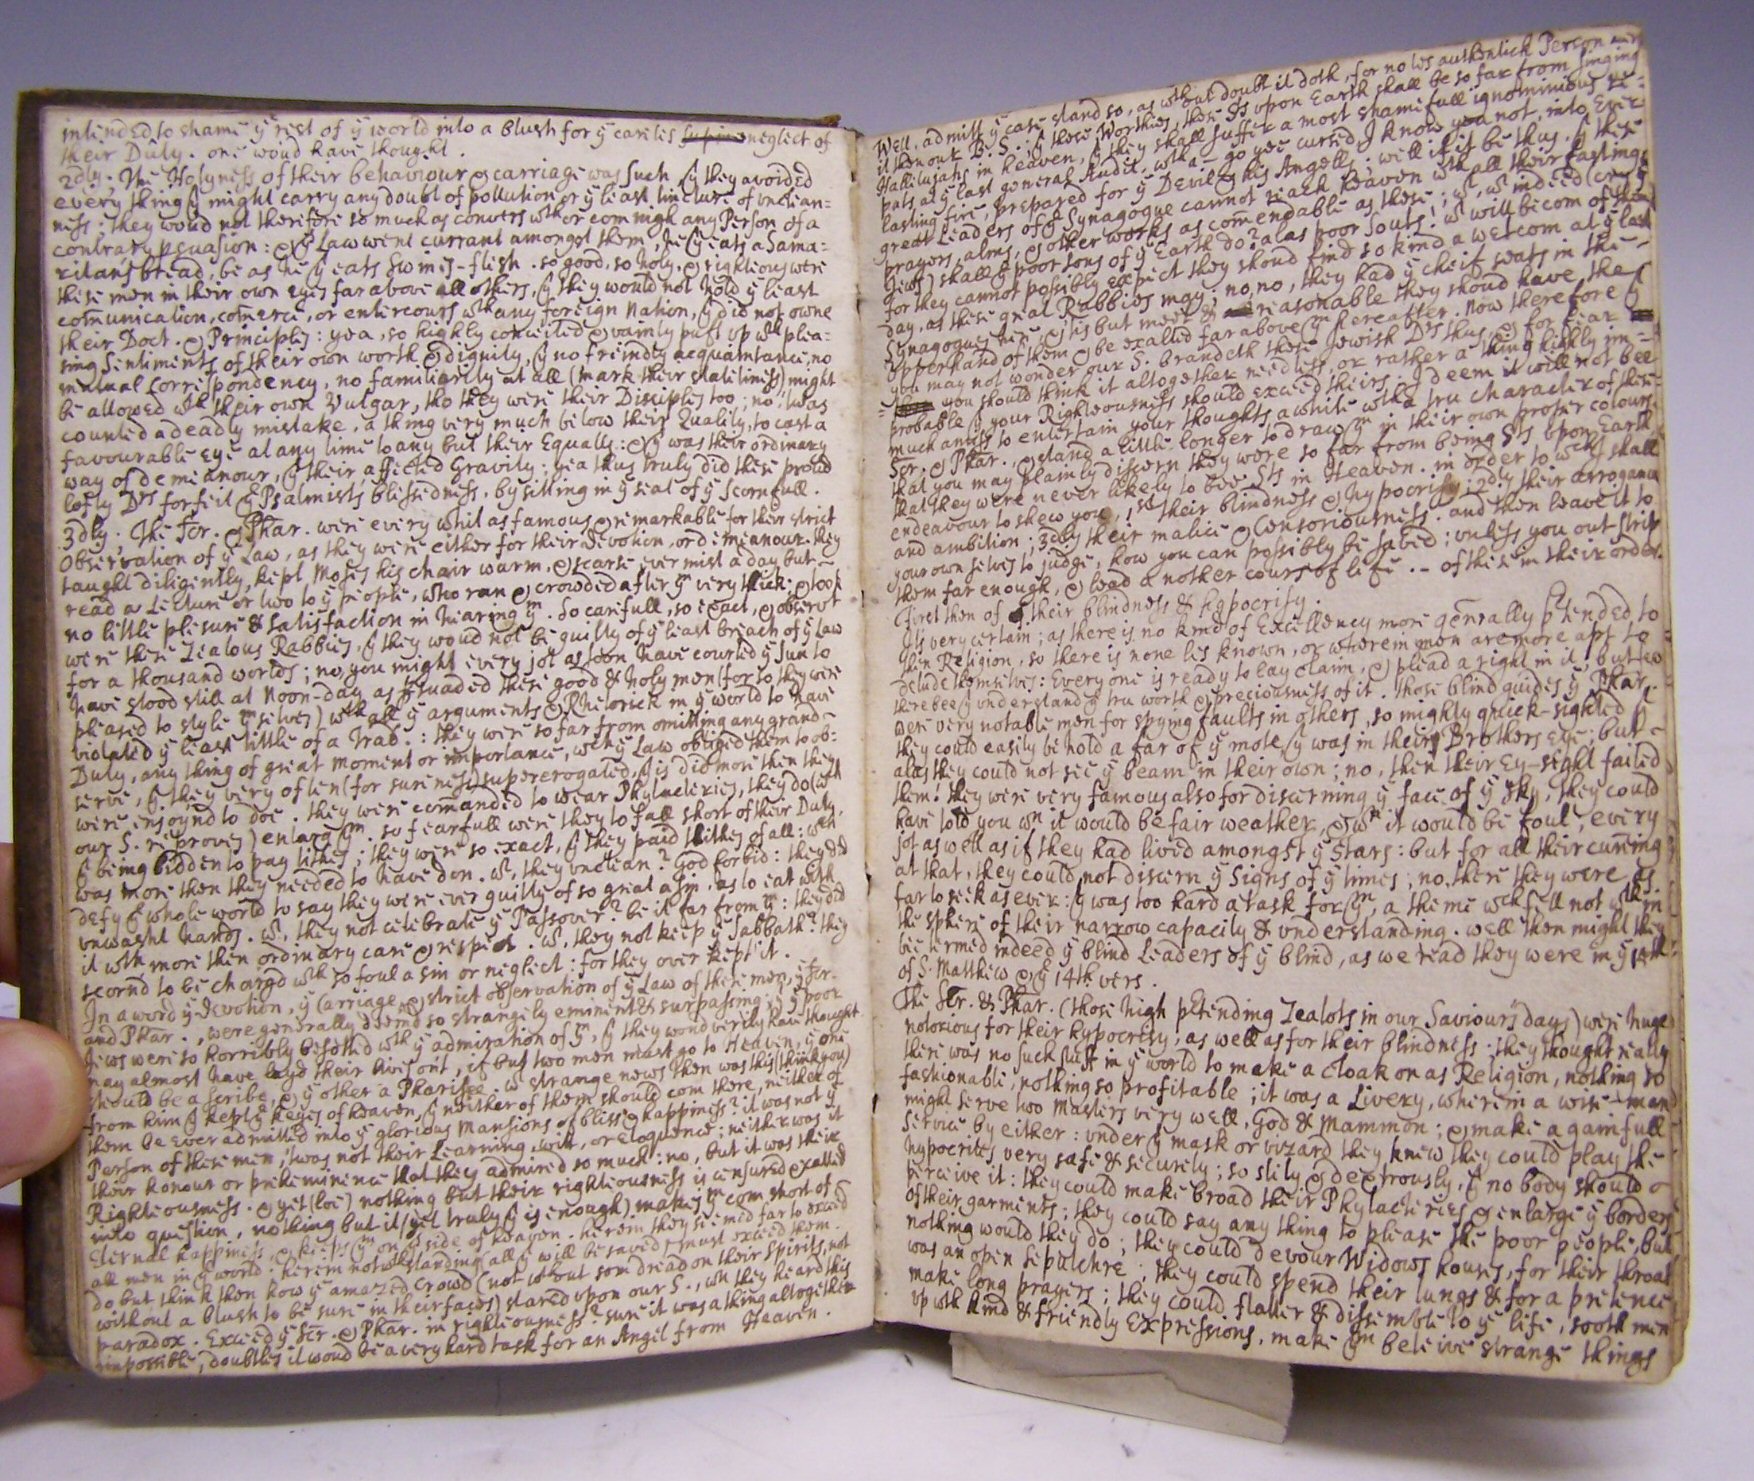 intended to shame yᵉ rest of yᵉ world into a blush for yᵉ careles supine neglect of
their Duty. one woud have thought.
2dly. The Holyness of their behaviour & carriage was such yᵗ they avoided
every thing yᵗ might carry any doubt of pollution or yᵉ least tincture of unclean=
ness; they woud not therefore so much as convers wᵗʰ or com nigh any Person of a
contrary pswasion: & yᵉ Law went currant amongst them, he yᵗ eats a Sama=
ritans bread, be as he yᵗ eats Swines-flesh. so good, so holy, & righteous were
these men in their own eyes far above all others, yᵗ they would not hold yᵉ least
com̄unication, com̄erce, or entercours wᵗʰ any foreign Nation, yᵗ did not owne
their Doct. & Principles: yea, so highly conceited & vainly puft up wᵗʰ plea=
sing Sentiments of their own worth & dignity, yᵗ no freindly acquaintance, no
mutual correspondency, no familiarity at all (mark their stateliness) might
be allowed wᵗʰ their own Vulgar, tho they were their Disciples too; no, 'twas
counted a deadly mistake, a thing very much below their Quality, to cast a
favourable Eye at any time to any but their Equalls: & yˢ was their ordinary
way of demeanour, yˢ their affected Gravity: yea thus truly did these proud
lofty Dʳˢ forfeit yᵉ Psalmists blessedness, by sitting in yᵉ seat of yᵉ Scornfull.
3dly. The Scr. & Phar. were every whit as famous & remarkable for their strict
Observation of yᵉ Law, as they were either for their Devotion, or demeanour. they
taught diligently, kept Moses his chair warm, & scarse ever mist a day but
read a Lecture or two to yᵉ people, who ran & crowded after yᵐ very thick; & took
no little plesure & satisfaction in hearing yᵐ. So carefull, so exact, & observt
were these Zealous Rabbies, yᵗ they woud not be guilty of yᵉ least breach of yᵉ Law
for a thousand worlds; no, you might every jot as soon have courted yᵉ Sun to
have stood still at Noon-day as pswaded these good & holy men (for so they were
pleased to style yᵐselves) wᵗʰ all yᵉ arguments & Rhetorick in yᵉ world to have
violated yᵉ least tittle of a Trad.: they were so far from omitting any grand
Duty, any thing of great moment or importance, wᶜʰ yᵉ Law obliged them to ob=
serve, yᵗ they very often (for sureness) supererogated, yᵗ is did more then they
were enjoynd to doe. they were com̄anded to wear Phylacteries, they do (wᶜʰ
our S. reproves) enlarge yᵐ. so fearfull were they to fall short of their Duty,
yᵗ being bidden to pay tithes; they were so exact, yᵗ they paid tithes of all: wᶜʰ
was more then they needed to have don. wᵗ, they unclean? God forbid: they did
defy yᵉ whole world to say they were ever guilty of so great a sin, as to eat with
unwasht hands. wᵗ, they not celebrate yᵉ Passover? be it far from yᵐ: they did
it wᵗʰ more then ordinary care & respect. wᵗ, they not keep yᵉ Sabbath? they
scornd to be chargd wᵗʰ so foul a sin or neglect: for they over kept it.
In a word yᵉ Devotion, yᵉ Carriage, & strict observation of yᵉ Law of these men, yᵉ Scr.
and Phar., were generally deemd so strangely eminent & surpassing, yᵗ yᵉ poor
Jews were so horribly besotted wᵗʰ yᵉ admiration of yᵐ, yᵗ they woud verily have thought
nay almost have layd their lives ont, if but two men must go to Heaven, yᵉ one
should be a Scribe, & yᵉ other a Pharisee. wᵗ strange news then was this (think you)
from him yᵗ kept yᵉ keyes of heaven, yᵗ neither of them should com there, neither of
them be ever admitted into yᵉ glorious Mansions of bliss & happiness? it was not yᵉ
Person of these men; 'twas not their Learning, wit, or Eloquence; neither was it
their honour or preheminence that they admired so much: no, but it was their
Righteousness. & yet (loe) nothing but their righteousness is censured & called
into question, nothing but it (yet truly yᵗ is enough) makes yᵐ com short of
Eternal happiness, & keeps yᵐ on yˢ side of heaven. herein they seemed far to exceed
all men in yᵉ world: herein notwithstanding all yᵗ will be saved must exceed them.
do but think then how yᵉ amazed crowd (not wᵗʰout som dread on their Spirits, not
without a blush to be sure in their faces) stared upon our S., wⁿ they heard this
paradox. Exceed yᵉ Scr. & Phar. in righteousness? sure it was a thing altogether
impossible; doubtles it woud be a very hard task for an Angel from Heaven.
Well, admitt yᵉ case stand so, as wᵗʰout doubt it doth, for no les authentick Person
it then our B. S.: yᵗ these Worthies, these Sᵗˢ upon Earth shall be so far from singing
Hallilujahs in heaven, yᵗ they shall suffer a most shamefull ignominious re=
puls at yᵉ last general Audit, wᵗʰ a - go yee cursed, I know you not, into Ever
lasting fire, prepared for yᵉ Devil & his Angells: well if it be thus, yᵗ these
great Leaders of yᵉ Synagogue cannot reach heaven wᵗʰ all their fastings
prayers, alms, & other works as com̄endable as these; wᵗ, wᵗ indeed (cry yᵉ
Jews) shall yᵉ poor sons of yᵉ Earth do? alas poor Souls! wᵗ will becom of them
for they cannot possibly expect they shoud find so kind a welcom at yᵉ last
day, as these great Rabbies may; no, no, they had yᵉ cheif seats in the
Synagogues here, & 'tis but meet & reasonable they shoud have the
upperhand of them & be exalted far above yᵐ hereafter. Now therefore yᵗ
you may not wonder our S. brandeth these Jewish Dʳˢ thus, & for fear
you should think it altogether needless, or rather a thing highly im=
probable yᵗ your Righteousness should exceed theirs: I deem it will not bee
much amiss to entertain your thoughts awhile wᵗʰ a tru character of these
Scr. & Phar., & stand a little longer to draw yᵐ in their own proper colours.
that you may plainly discern they were so far from being Sᵗˢ upon Earth
that they were never likely to bee Sᵗˢ in Heaven. in order to wᶜʰ I shall
endeavour to shew you, 1ˢᵗ their blindness & hypocrisy; 2dly their arrogance
and ambition; 3dly their malice & Censoriousness. and then leave it to
your own selves to judge, how you can possibly be saved; unless you out strip
them far enough, & lead another cours of life. -- of these in their order.
First then of their blindness & hypocrisy.
Its very certain; as there is no kind of Excellency more genrally ptended to
then Religion, so there is none les known, or wherein men are more apt to
delude themselves: Every one is ready to lay claim, & plead a right in it, but few
there bee yᵗ understand yᵉ tru worth & preciousness of it. Those blind guides yᵉ Phar.
were very notable men for spying faults in others, so mighty quick-sighted yᵗ
they could easily behold a far of yᵉ mote yᵗ was in their Brothers Eye; but
alas they could not see yᵉ beam in their own; no, then their Ey-sight failed
them! they were very famous also for discerning yᵉ face of yᵉ sky, they could
have told you wⁿ it would be fair weather, & wⁿ it would be foul, every
jot as well as if they had lived amongst yᵉ Stars: but for all their cun̄ing
at that, they could not discern yᵉ Signs of yᵉ times; no, there they were as
far to seek as ever: yᵗ was too hard a task for yᵐ, a theme wᶜʰ fell not wᵗʰin
the sphere of their narrow capacity & understanding. well then might they
be termed indeed yᵉ blind Leaders of yᵉ blind, as we read they were in yᵉ 15th
of S. Matthew & yᵉ 14th. vers.
The Scr. & Phar. (those high ptending Zealots in our Saviour's days) were huge
notorious for their hypocrisy, as well as for their blindness: they thought really
there was no such stuff in yᵉ world to make a cloak on as Religion, nothing so
fashionable, nothing so profitable; it was a Livery, wherein a wise man
might serve two Masters very well, God & Mammon; & make a gainfull
service by either: under yˢ mask or vizard they knew they could play the
hypocrites very safe & securely; so slily & dextrously, yᵗ no body should
perceive it: they could make broad their Phylacteries & enlarge yᵉ borders
of their garments; they could say any thing to please the poor people, but
nothing would they do; they could devour Widows houses, for their throat
was an open Sepulchre; they could spend their lungs & for a pretence
make long prayers; they could flatter & dissemble to yᵉ life, sooth men
up wᵗʰ kind & friendly Expressions, make yᵐ beleive strange things